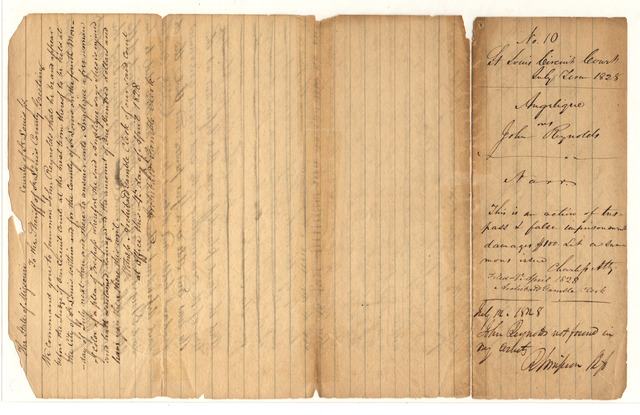 The State of Missouri
County of St Louis
To the Sheriff of St Louis County Greeting
We command you to summon John Reynolds that he be and appear
before the Judge of our Circuit Court at the next term thereof to be held at
the City of St Louis within and for the County of St Louis on the fourth Mon
day of July next then and there to answer unto Angelique a free woman
of color of a plea of Trespass wherefore the said Angelique says she is injured
and hath sustained damages to the amount of One hundred dollars and
have you then there this writ
Witness Archibald Gamble Clerk of our said Court
at office this day of April 1828
Archibald Gamble Clerk
No. 10
St Louis Circuit Court
July Term 1828
Angelique
vs
John Reynolds
Narr
This is an action of tres
pass & false imprisonment
damages $100 Let a Sum
mons issue
Charless Atty
Filed April 1828
Archibald Gamble Clerk
July 14. 1828
John Reynolds not found in
my County
R Simpson Shff